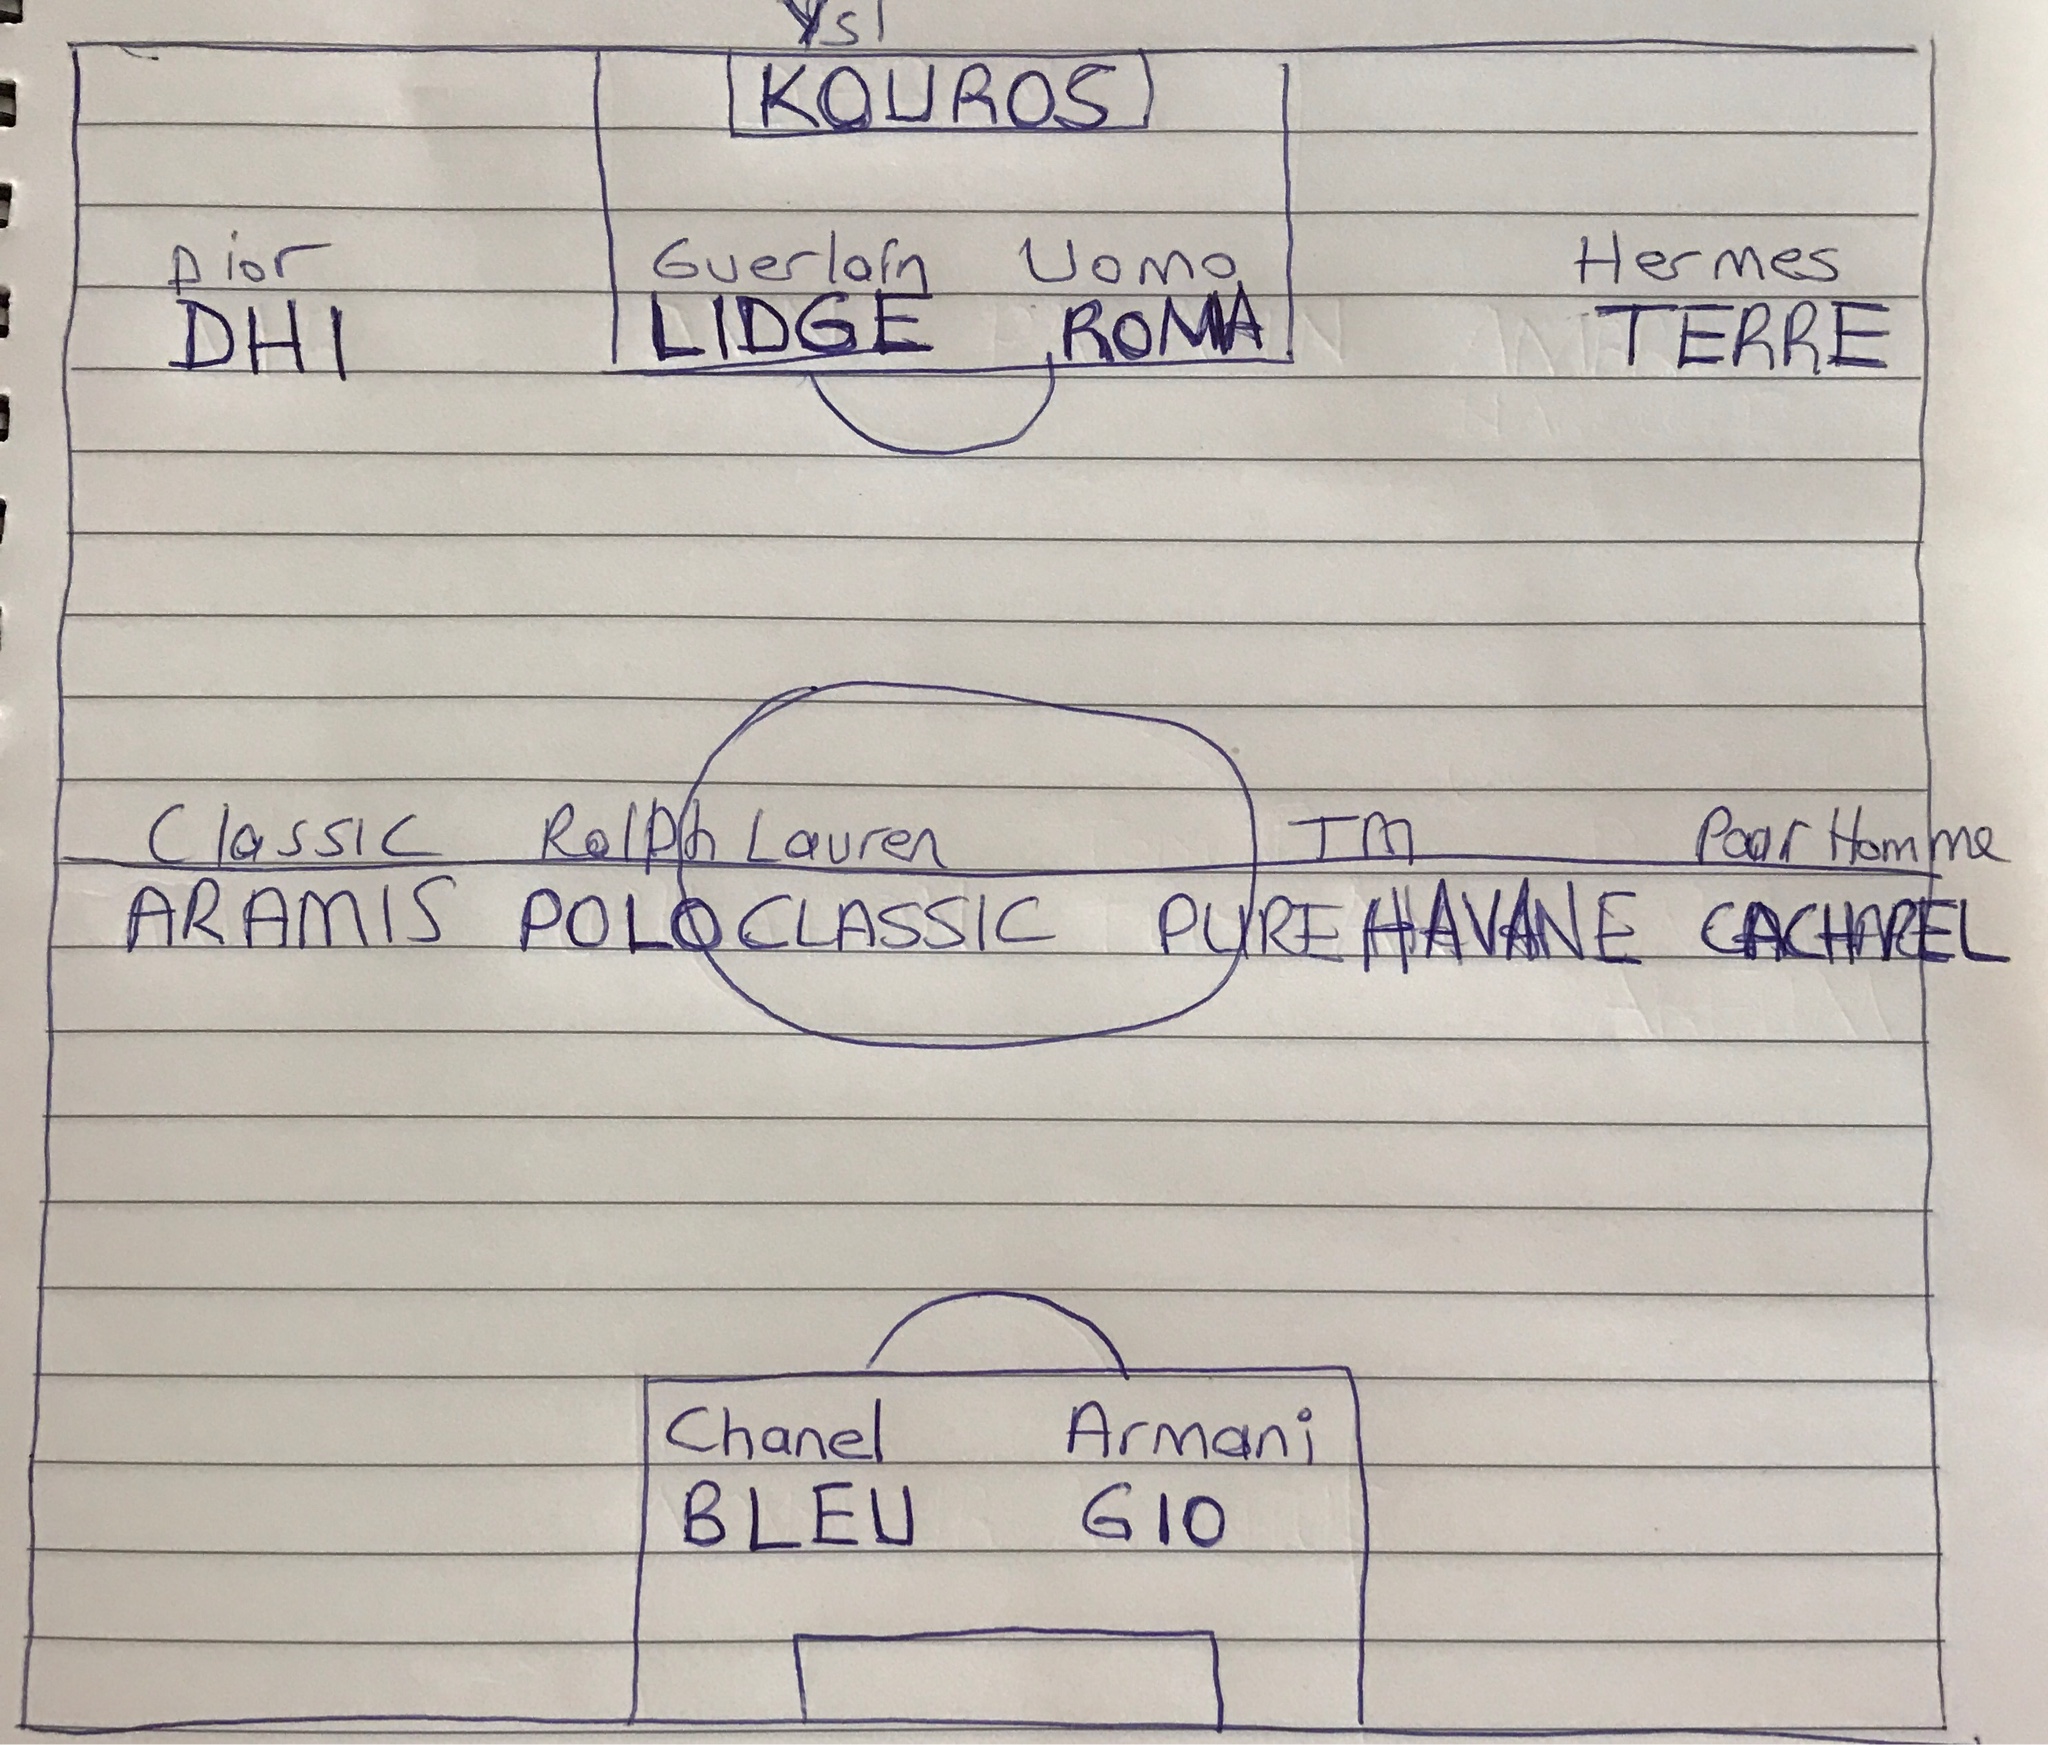 Ysl
KOUROS
Dior Guerlain Uomo Hermes
DHI LIDGE ROMA TERRE
Classic Ralph Lauren TM Pour Homme
ARAMIS POLO CLASSIC PURE HAVANE CACHAREL
Chanel Armani
BLEU GIO